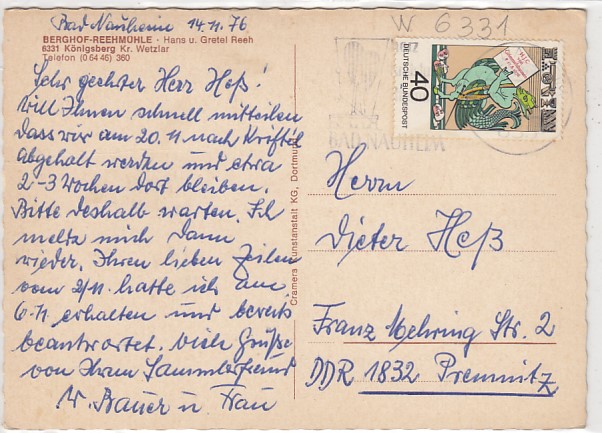 Bad Nauheim 14.11.76
BERGHOF-REEHMÜHLE · Hans u. Gretel Reeh
6331 Königsberg Kr. Wetzlar
Telefon (0 64 46) 360
Sehr geehrter Herr Heß!
Will Ihnen schnell mitteilen
dass wir am 20.11 nach
abgeholt werden und etwa
2-3 Wochen dort bleiben.
Bitte deshalb warten. Ich
melde mich dann
wieder. Ihren lieben Zeilen
vom 2/11. hatte ich am
6.11 erhalten und bereits
beantwortet. Viele Grüße
von Ihrem Sammlerfreund
W. Bauer u. Frau
Cramers Kunstanstalt KG, Dortmund
W 6331
DEUTSCHE BUNDESPOST
40
BAD NAUHEIM
Herrn
Dieter Heß
Franz Mehring Str. 2
DDR 1832 Premnitz